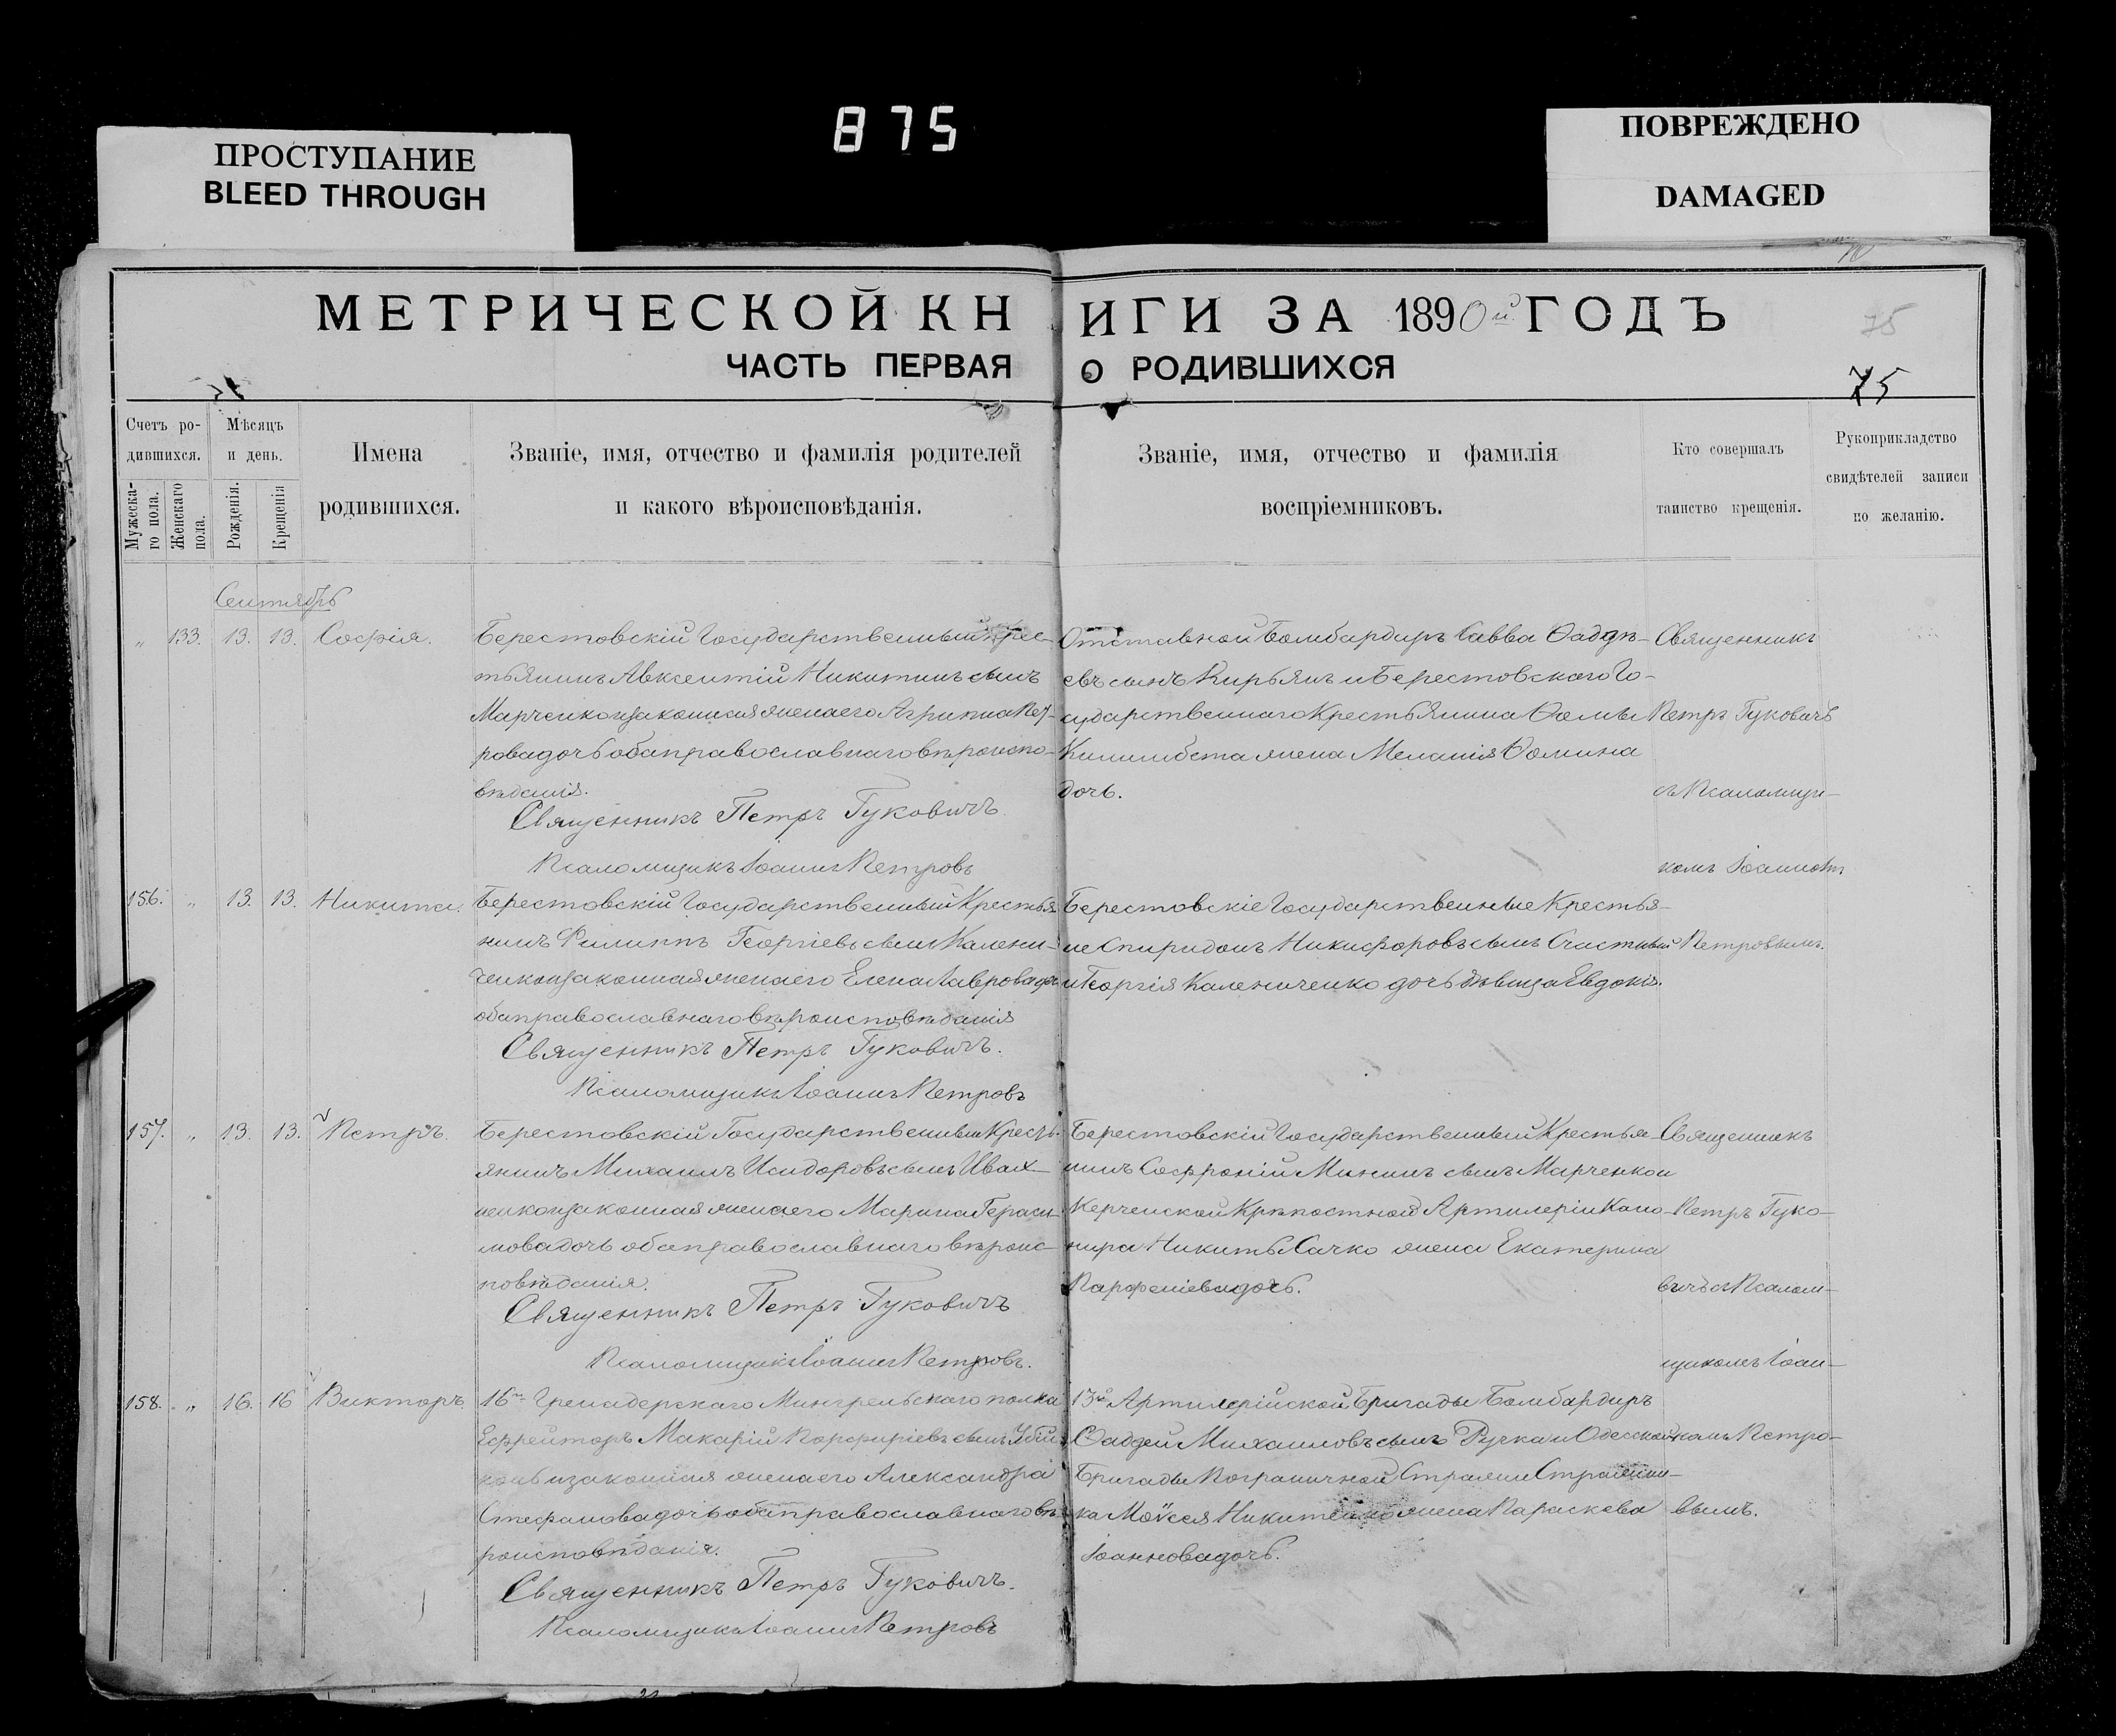 ПРОСТУПАНИЕ
BLEED THROUGH
875
ПОВРЕЖДЕНО
DAMAGED
МЕТРИЧЕСКОЙ КНИГИ ЗА 1890й ГОДЪ
75
ЧАСТЬ ПЕРВАЯ О РОДИВШИХСЯ
75
Счетъ ро-
дившихся.
Мужеска-
го пола.
Женскаго
пола.
Мѣсяцъ
и день.
Рожденія.
Крещенія
Имена
родившихся.
Званіе, имя, отчество и фамилія родителей
и какого вѣроисповѣданія.
Званіе, имя, отчество и фамилія
воспріемниковъ.
Кто совершалъ
таинство крещенія.
Рукоприкладство
свидѣтелей записи
по желанію.
Сентябрь
„ 133. 13. 13. Софія.
Берестовскій Государственный Крес-
тьянинъ Авксентій Никитинъ сынъ
Марченко и законная жена его Агрипина Пет-
рова дочь оба православнаго вѣроиспо-
вѣданія.
Священникъ Петръ Гуковичъ
Псаломщикъ Іоаннъ Петровъ
Отставной Бомбардиръ Савва Фаддѣ-
евъ сынъ Кирьянъ и Берестовскаго Го-
сударственнаго Крестьянина Фомы
жена Меланія Фомина
дочь.
Священникъ
Петръ Гуковичъ
съ Псаломщи-
комъ Іоанномъ
Петровымъ.
156. „ 13. 13. Никита.
Берестовскій Государственный Крестья-
нинъ Филиппъ Георгіевъ сынъ Калени-
ченко и законная жена его Елена Лаврова дочь
оба православнаго вѣроисповѣданія
Священникъ Петръ Гуковичъ.
Псаломщикъ Іоаннъ Петровъ
Берестовскіе Государственные Крестья-
не Спиридонъ Никифоровъ сынъ Счастный
и Георгія Калениченко дочь дѣвица Евдокія.
157. „ 13. 13. Петръ.
Берестовскій Государственный Кресть-
янинъ Михаилъ Исидоровъ сынъ Ивах-
ненко и законная жена его Марина Гераси-
мова дочь оба православнаго вѣроис-
повѣданія.
Священникъ Петръ Гуковичъ
Псаломщикъ Іоаннъ Петровъ.
Берестовскій Государственный Крестья-
нинъ Софроній Мининъ сынъ Марченко и
Керченской Крѣпостной Артилеріи Кано-
нира Никиты Сачко жена Екатерина
Парфеніева дочь.
Священникъ
Петръ Гуко-
вичъ съ Псалом-
щикомъ Іоан-
номъ Петро-
вымъ.
158. „ 16. 16 Викторъ.
16го Гренадерскаго Мингрельскаго полка
Ефрейторъ Макарій Порфиріевъ сынъ
и законная жена его Александра
Стефанова дочь оба православнаго вѣ-
роисповѣданія.
Священникъ Петръ Гуковичъ.
Псаломщикъ Іоаннъ Петровъ
13й Артилерійской Бригады Бомбардиръ
Фаддей Михаиловъ сынъ Ручка и Одесской
Бригады Пограничной Стражи Стражни-
ка Моѵсея Никитенко жена Параскева
Іоаннова дочь.